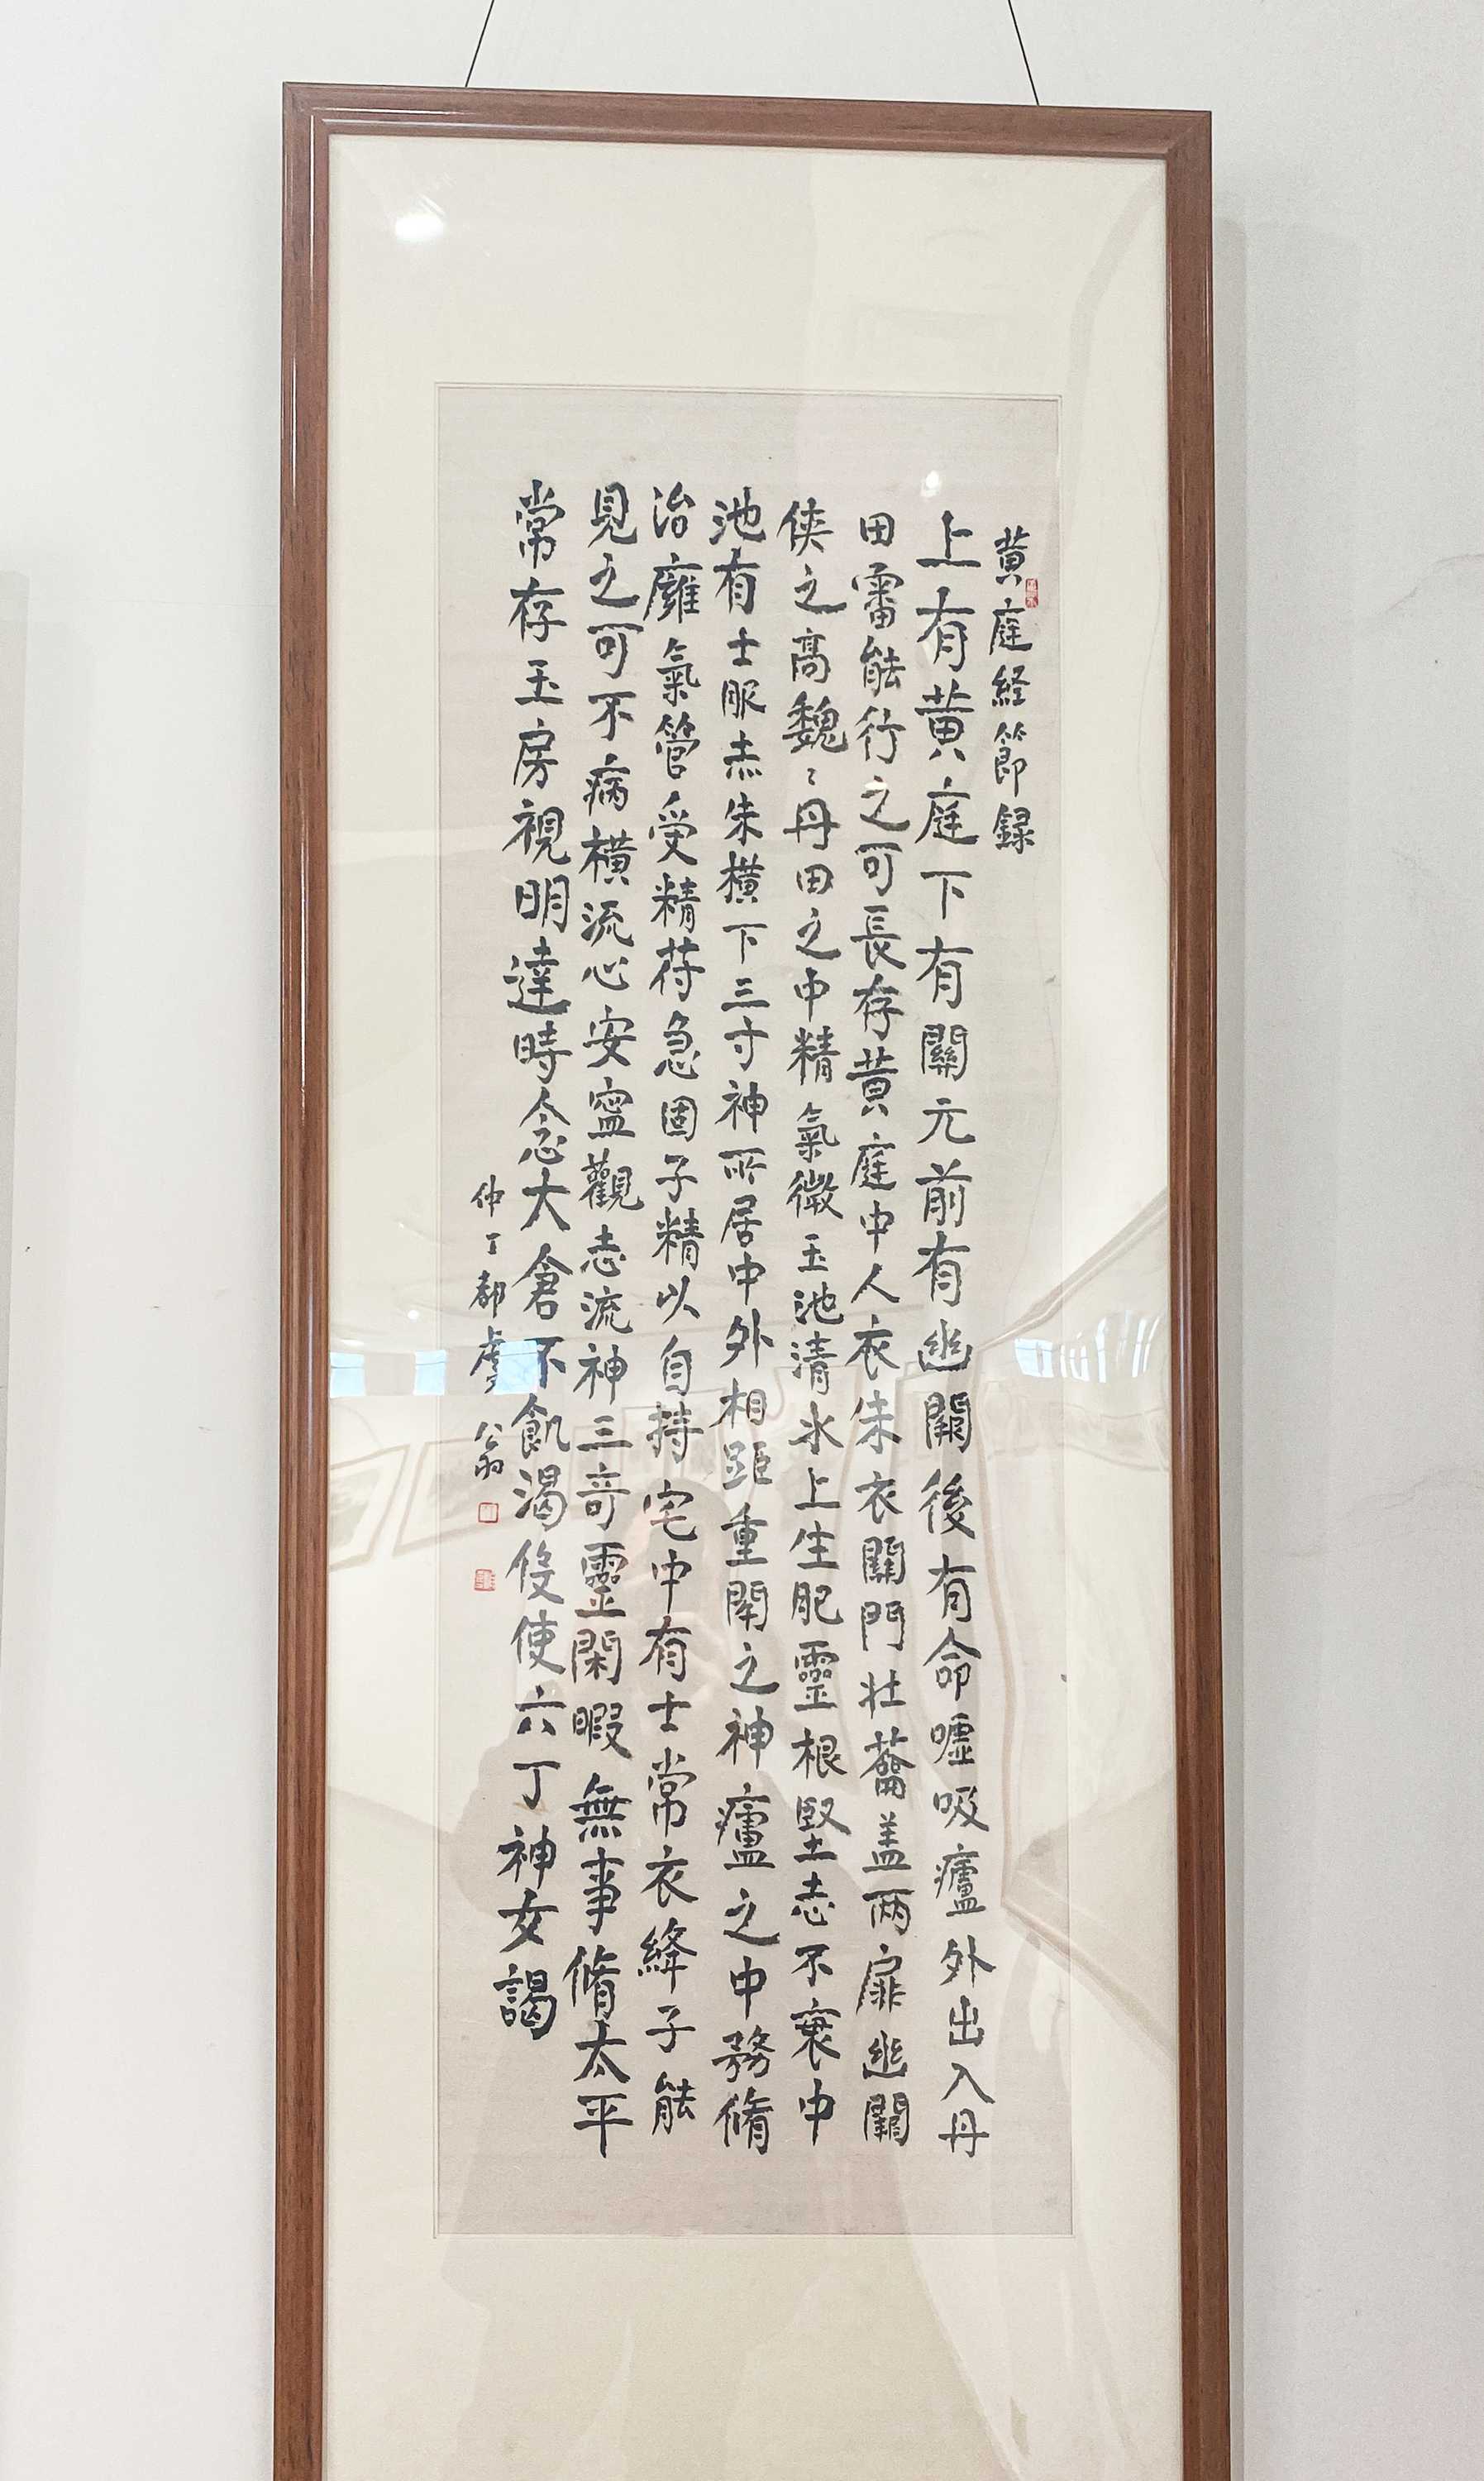 黄庭経節録
上有黄庭下有關元前有幽關後有命噓吸廬外出入丹
田審能行之可長存黄庭中人衣朱衣關門壮蘥盖兩扉幽關
侠之高魏〻丹田之中精氣微玉池清水上生肥靈根堅志不衰中
池有士服赤朱横下三寸神所居中外相距重閉之神廬之中務脩
治廱氣管受精苻急固子精以自持宅中有士常衣絳子能
見之可不病横流心安寧觀志流神三奇靈閑暇無事脩太平
常存玉房視明達時念大倉不飢渴伇使六丁神女謁
仲丁都 公翁